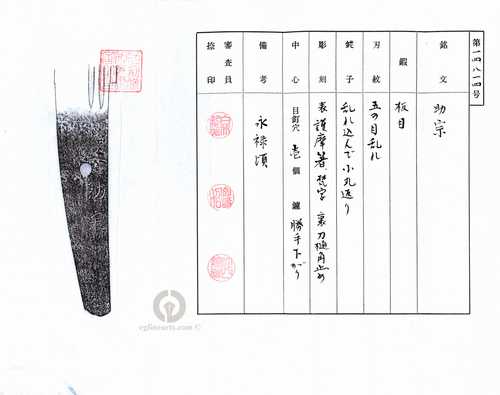 第一四八一四号
銘文 助宗
鍛 板目
刃紋 五の目乱れ
鋩子 乱れ込んで小丸返り
彫刻 表 護摩箸、梵字 裏 刀樋角止め
中心 目釘穴 壱個 鑢 勝手下がり
備考 永禄頃
審査員捺印
eginearts.com ©